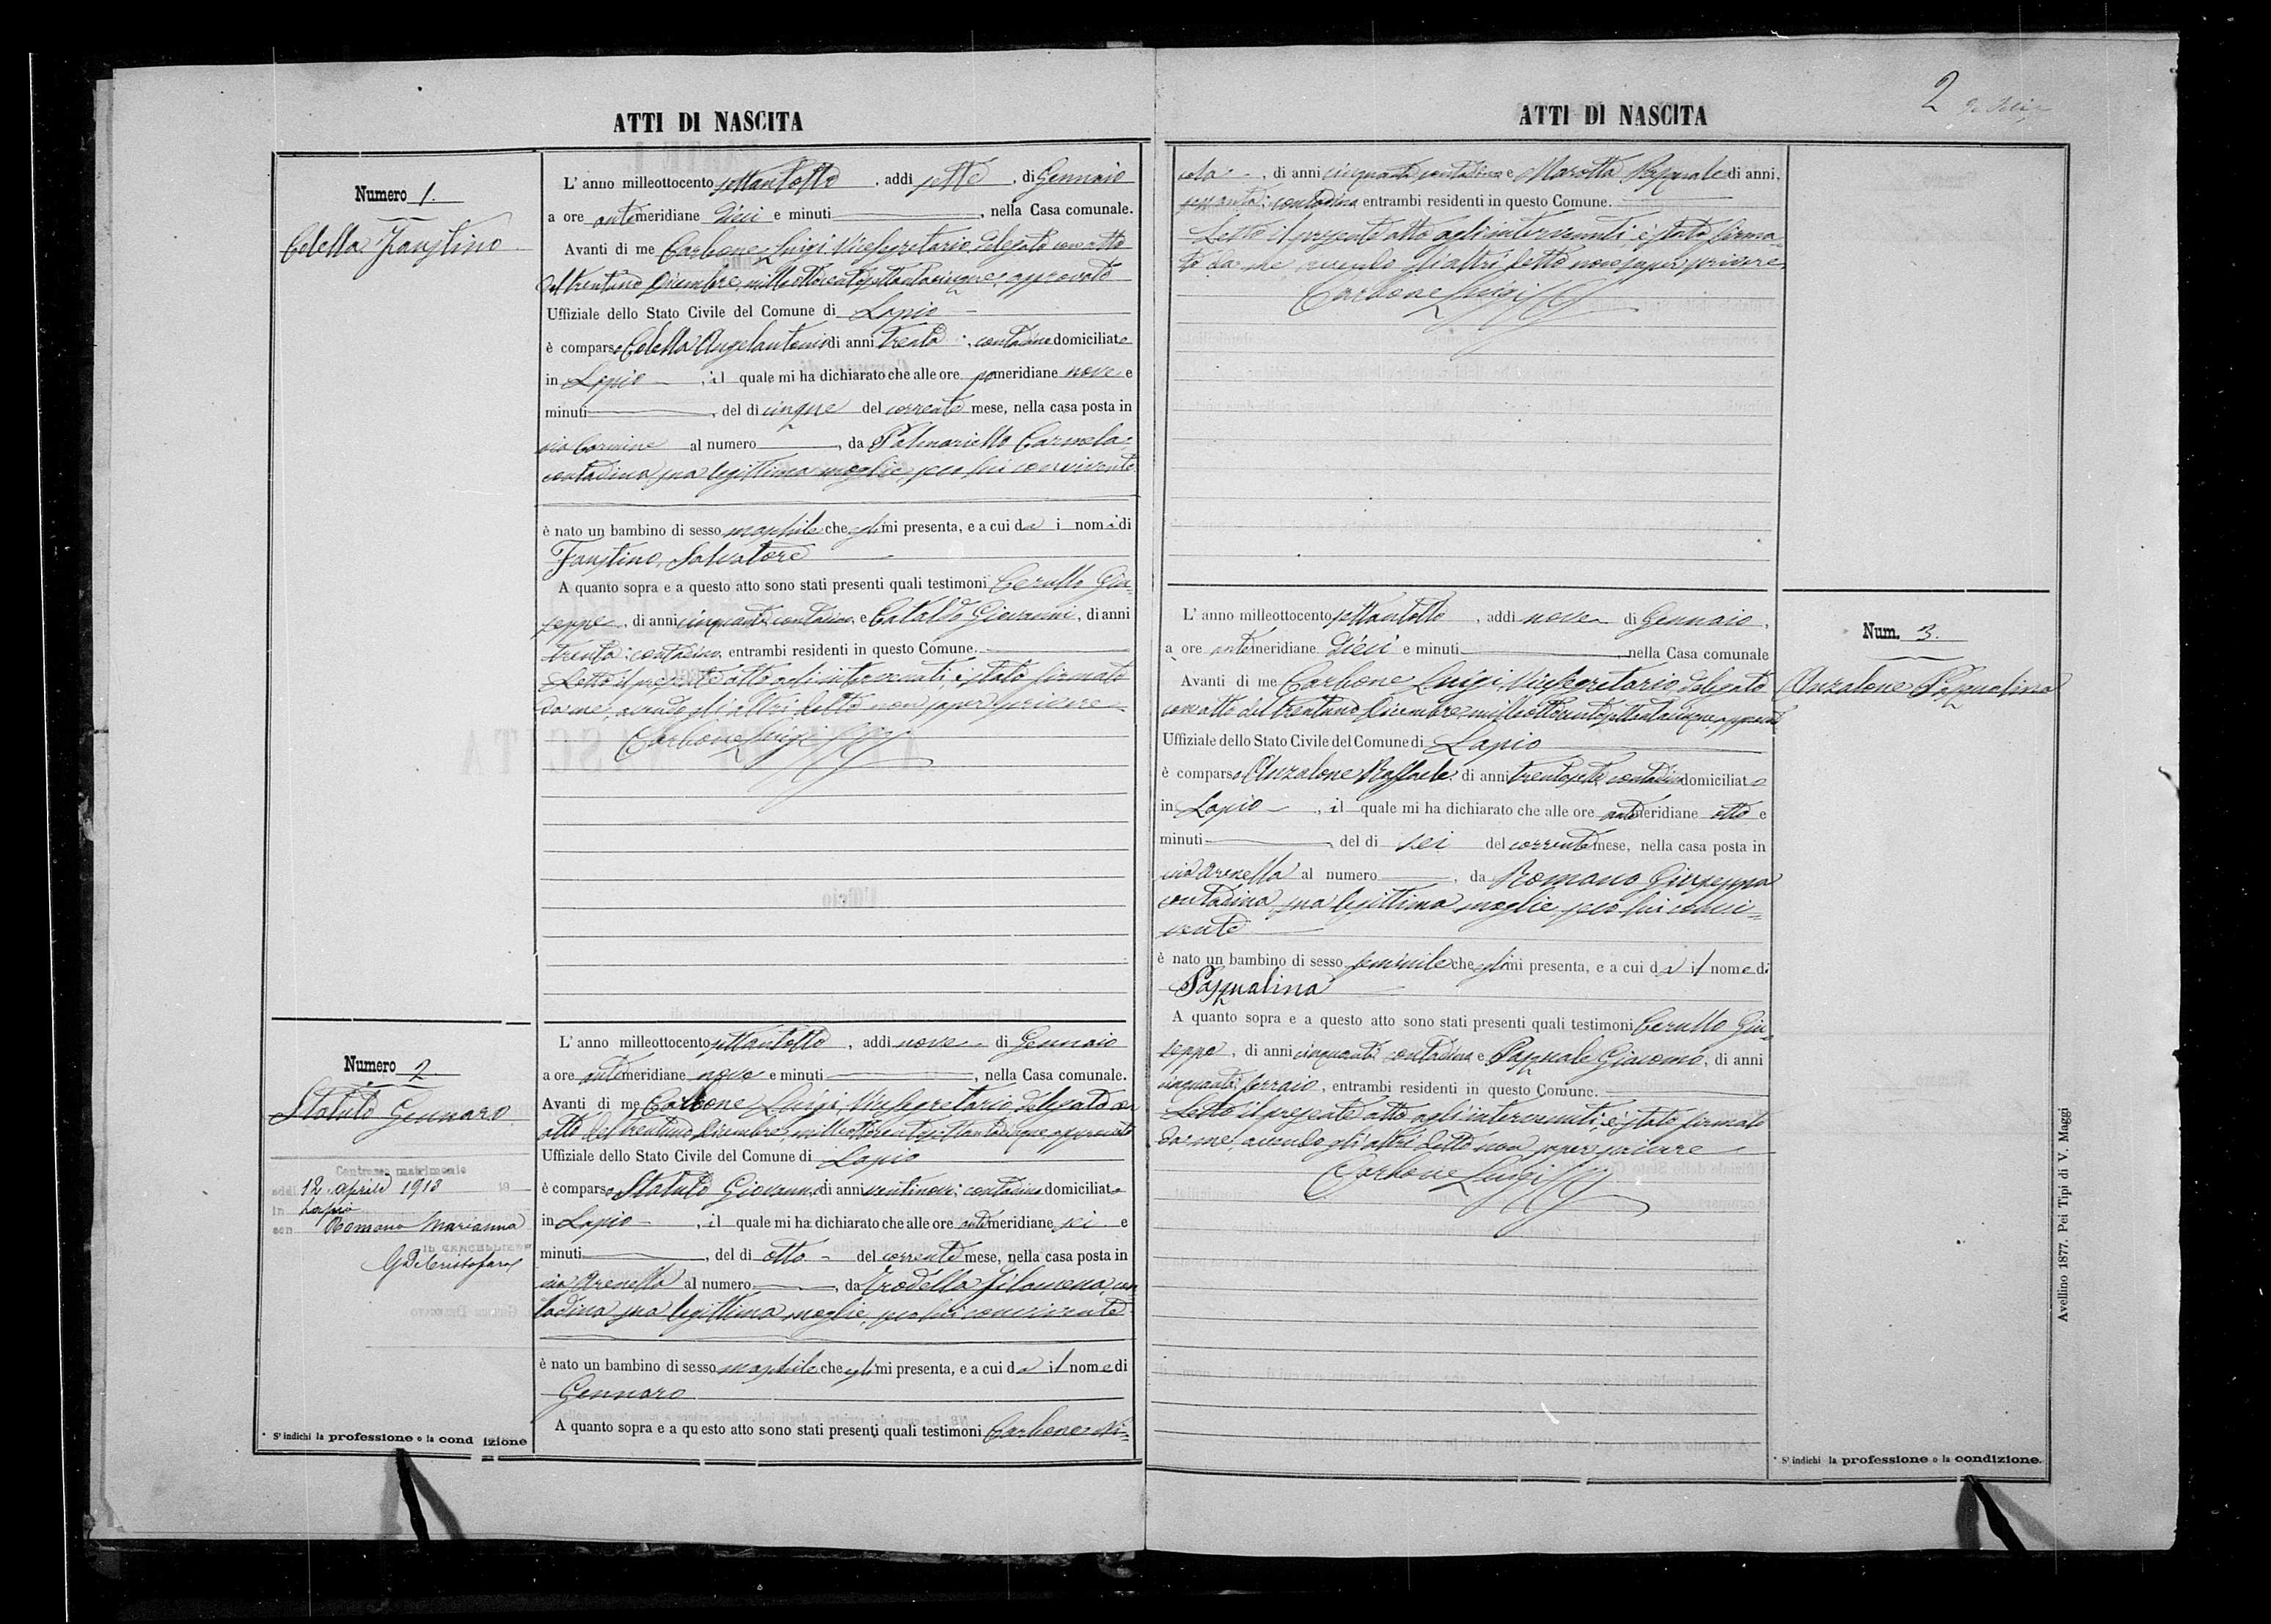 ATTI DI NASCITA
Numero 1.
Colella Faustino
L' anno milleottocento settantotto, addi sette, di Gennaio
a ore antimeridiane dieci e minuti, nella Casa comunale.
Avanti di me Carbone Luigi Vicesegretario delegato con atto
del trentuno Dicembre milleottocentosettantacinque, approvato
Uffiziale dello Stato Civile del Comune di Lapio
è comparso Colella Angelantonio di anni trenta, contadino domiciliato
in Lapio, il quale mi ha dichiarato che alle ore pomeridiane nove e
minuti, del dì cinque del corrente mese, nella casa posta in
via Carmine al numero, da Palmariello Carmela
contadina, sua legittima moglie, seco lui convivente
è nato un bambino di sesso maschile che egli mi presenta, e a cui dà i nomi di
Faustino, Salvatore
A quanto sopra e a questo atto sono stati presenti quali testimoni Cerullo Giu=
seppe, di anni cinquanta, contadino e Cataldo Giovanni, di anni
trenta, contadino, entrambi residenti in questo Comune.
Letto il presente atto agli intervenuti, è stato firmato
da me, avendo gli altri detto non saper scrivere
Carbone Luigi
Numero 2
Statuto Gennaro
Contrasse matrimonio
addì 12 aprile 1913 19
in Lapio
con Romano Marianna
IL CANCELLIERE
G De Cristofaro
L' anno milleottocento settantotto, addi nove di Gennaio
a ore antimeridiane nove e minuti, nella Casa comunale.
Avanti di me Carbone Luigi, Vicesegretario delegato con
atto del trentuno Dicembre milleottocentosettantacinque approvato
Uffiziale dello Stato Civile del Comune di Lapio
è comparso Statuto Giovanni, di anni ventinove, contadino domiciliato
in Lapio, il quale mi ha dichiarato che alle ore antimeridiane sei e
minuti, del dì otto del corrente mese, nella casa posta in
via Arenella al numero, da Trodella Filomena, con
tadina sua legittima moglie, seco lui convivente
è nato un bambino di sesso maschile che egli mi presenta, e a cui dà il nome di
Gennaro
A quanto sopra e a questo atto sono stati presenti quali testimoni Carbone Ni=
* S' indichi la professione o la condizione
ATTI DI NASCITA
2
cola, di anni cinquanta, contadino e Marotta Pasquale di anni,
sessanta, contadino entrambi residenti in questo Comune.
Letto il presente atto agli intervenuti è stato firma=
to da me avendo gli altri detto non saper scrivere
Carbone Luigi
Num. 3.
Anzalone Pasqualina
L' anno milleottocento settantotto, addi nove di Gennaio,
a ore antimeridiane dieci e minuti, nella Casa comunale
Avanti di me Carbone Luigi, Vicesegretario delegato
con atto del trentuno Dicembre milleottocentosettantacinque, approvato
Uffiziale dello Stato Civile del Comune di Lapio
è comparso Anzalone Raffaele, di anni trentasette, contadino domiciliato
in Lapio, il quale mi ha dichiarato che alle ore antimeridiane otto e
minuti, del di sei del corrente mese, nella casa posta in
via Arenella al numero, da Romano Giuseppa
contadina, sua legittima moglie, seco lui convi=
vente
è nato un bambino di sesso feminile che egli mi presenta, e a cui dà il nome di
Pasqualina
A quanto sopra e a questo atto sono stati presenti quali testimoni Cerullo Giu=
seppe, di anni cinquanta, contadino e Pasquale Giacomo, di anni
cinquanta, ferraio, entrambi residenti in questo Comune.
Letto il presente atto agli intervenuti, è stato firmato
da me, avendo gli altri detto non saper scrivere
Carbone Luigi
* S' indichi la professione o la condizione.
Avellino 1877. Pei Tipi di V. Maggi